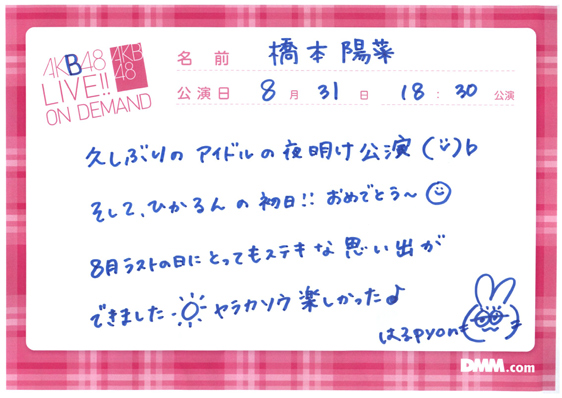 AKB48
LIVE!!
ON DEMAND
AKB
48
名前 橋本陽菜
公演日 8月31日 18:30 公演
久しぶりのアイドルの夜明け公演(¨)b
そして、ひかるんの初日!! おめでとう〜
8月ラストの日にとってもステキな思い出が
できました ヤラカソウ楽しかった♪
はるpyon
DMM.com